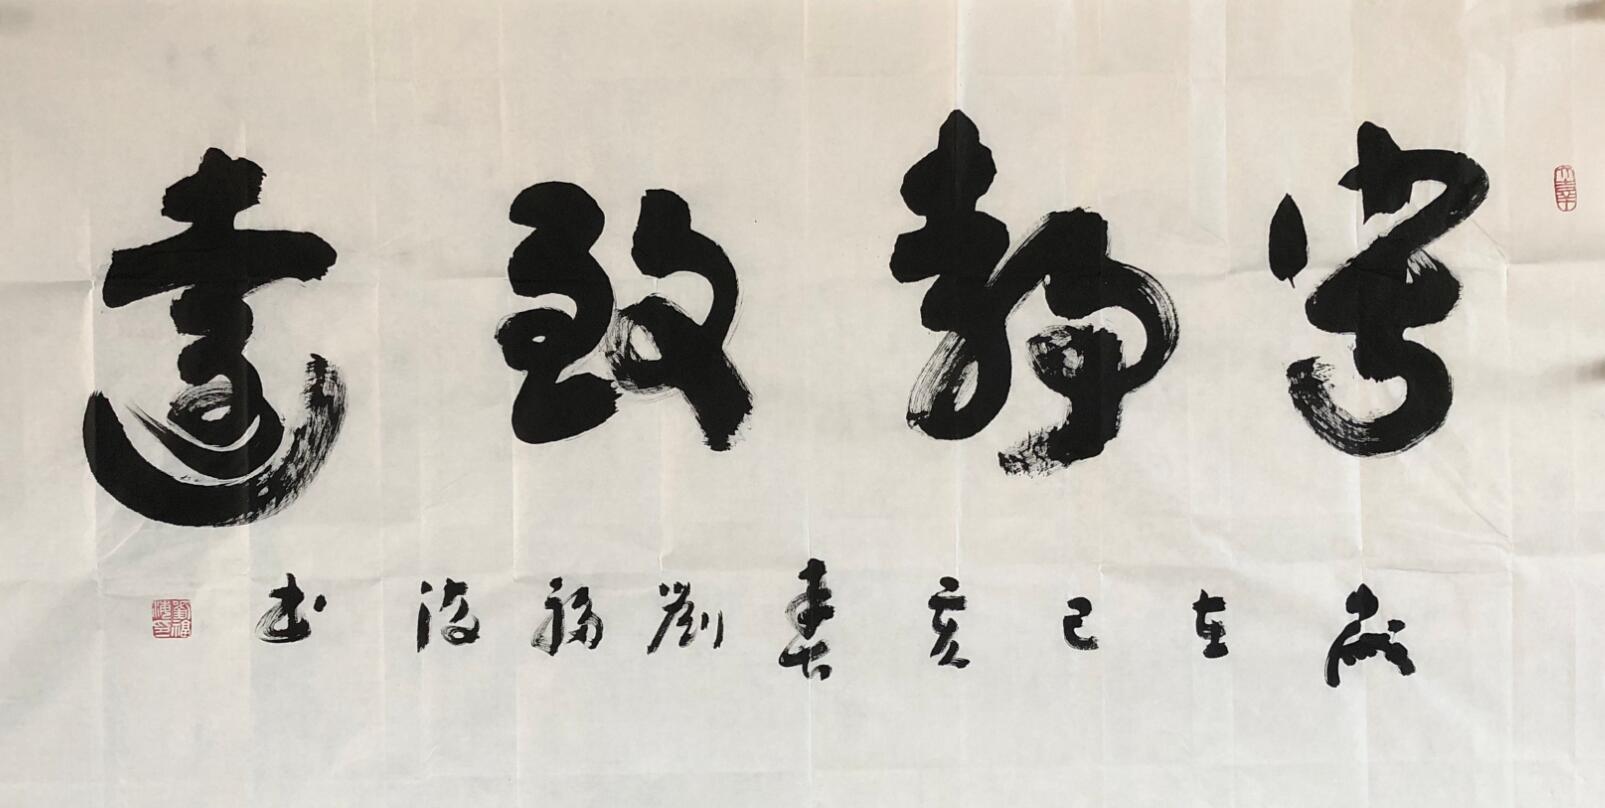 寧靜致遠
歲在己亥春劉福海書